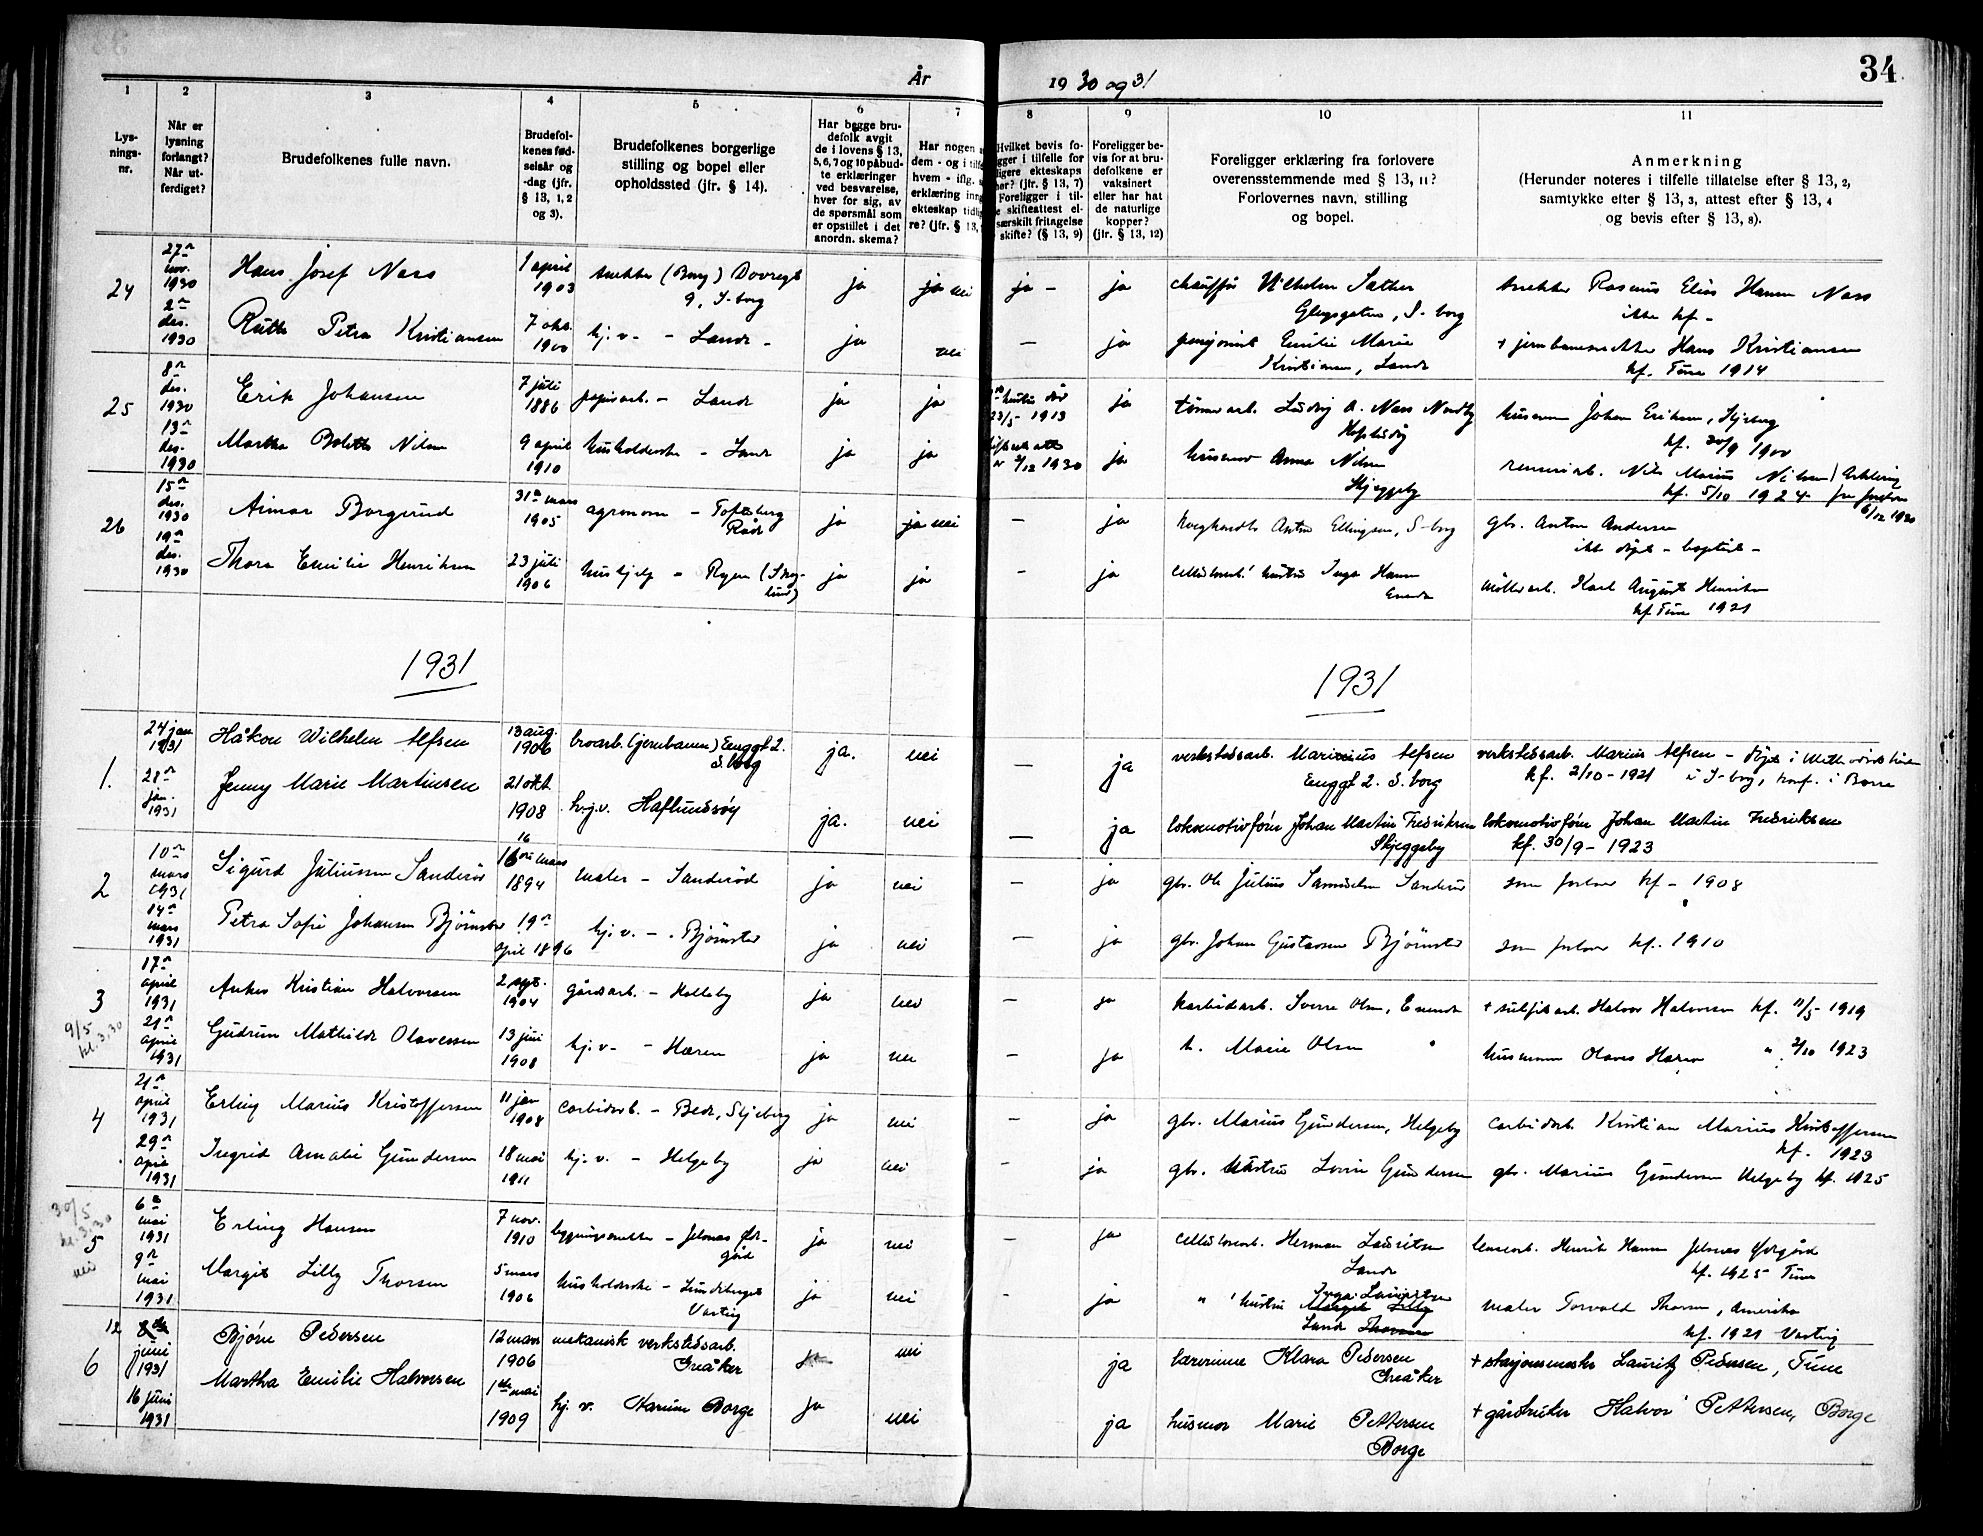 34
År 1930 og 31
1 2 3 4 5 6 7 8 9 10 11
Lys-
nings-
nr.
Når er
lysning
forlangt?
Når ut-
ferdiget?
Brudefolkenes fulle navn.
Brudefol-
kenes fød-
selsår og
-dag (jfr.
§ 13, 1, 2
og 3).
Brudefolkenes borgerlige
stilling og bopel eller
opholdssted (jfr. § 14).
Har begge bru-
defolk avgit
de i lovens § 13,
5, 6, 7 og 10 påbud-
te erklæringer
ved besvarelse,
hver for sig, av
de spørsmål som
er opstillet i det
anordn. skema?
Har nogen
dem - og i
hvem - iflg.
erklæring
ekteskap
re? (jfr. § 13,
Hvilket bevis fo-
gger i tilfelle for
ligere ekteskaps
her? (jfr. § 13, 7)
Foreligger i til-
e skifteattest el-
særskilt fritagelse
skifte? (§ 13, 9)
Foreligger be-
vis for at bru-
defolkene er
vaksinert
eller har hat
de naturlige
kopper?
(jfr. § 13, 12)
Foreligger erklæring fra forlovere
overensstemmende med § 13, 11?
Forlovernes navn, stilling
og bopel.
Anmerkning
(Herunder noteres i tilfelle tillatelse efter § 13, 2,
samtykke efter § 13, 3, attest efter § 13, 4
og bevis efter § 13, 8).
24
27n
nov.
1930
2n
des.
1930
Hans Josef Nass
1 april
1903
snekker (Borg) Dovregt
9, S-borg
ja
ja nei
ja -
ja
chauffør Vilhelm Sather
Glengsgaten, S-borg
snekker Rasmus Elias Hansen Nass
ikke kf -
Ruth Petra Kristiansen
7 okt.
1900
hj.v. - Lande -
ja
nei
—
ja
pensjonist Emilie Marie
Kristiansen, Lande
+ jernbanesnekker Hans Kristiansen
kf. Tune 1914
25
8n
des.
1930
13n
des.
1930
Erik Johansen
7 juli
1886
papirarb. - Lande
ja
ja
23/5 - 1913
ja
tømmerarb. Ludvig A. Nass Nordby
husmann Johan Eriksen, Skjeberg
kf. 30/9 1900
Martha Bolette Nilsen
9 april
1910
husholderske - Lande
ja
ja
2/12 1930
ja
husmor Anna Nilsen
Skjeggeby
renseriarb. Nils Marius Nilsen
kf. 5/10 1924
6/12 1930
26
15n
des.
1930
19n
des.
1930
Aimar Borgerud
31n mars
1905
agronom - Tofteberg
Råde
ja
ja nei
—
ja
Anton Ellingsen, S-borg
gbr. Anton Andersen
ikke døpt - baptist -
Thora Emilie Henriksen
23 juli
1906
hushjelp - Rygen
ja
ja
—
ja
hustru Inga Hansen
møllearb. Karl August Henriksen
kf Tune 1921
1931
1931
1.
24 jan
1931
28n
jan.
1931
Håkon Wilhelm Alfsen
13 aug.
1906
broarb. (jernbanen) Enggt 2.
S.borg
ja.
nei
—
ja
verkstedsarb. Marinius Alfsen
Enggt 2. S. borg
verkstedsarb. Marius Alfsen - døpt i Methodistkirken
kf. 2/10 - 1921 i S-borg, konf. i Borre
Jenny Marie Martinsen
21 okt
1908
hj.v. Haflundsøy
ja.
nei
—
ja
lokomotivfører Johan Martin Fredriksen
Skjeggeby
lokomotivfører Johan Martin Fredriksen
kf. 30/9 - 1923
2
10n
mars
1931
14n
mars
1931
Sigurd Juliussen Sanderød
16
mars
1894
maler - Sanderød
ja
nei
—
ja
gbr. Ole Julius Samuelsen Sanderød
som forlover kf - 1908
Petra Sofie Johansen Bjørnstad
19n
april 1896
hj.v. - Bjørnstad
ja
nei
—
ja
gbr. Johan Gustavsen Bjørnstad
som forlover kf. 1910
3
9/5
kl. 3,30
17n
april
1931
21n
april
1931
Anker Kristian Halvorsen
2 sept.
1904
gårdsarb. - Holleby
ja
nei
—
ja
karbidarb. Sverre Olsen, Enende
+ sulfitarb. Halvor Halvorsen kf. 11/5 - 1919
Gudrun Mathilde Olavessen
13 juni
1908
hj.v. - Haren
ja
nei
—
ja
h. Marie Olsen "
husmann Olaves Haren " 2/10 1923
4
21n
april
1931
29n
april
1931
Erling Marius Kristoffersen
11 jan
1908
carbidarb. - Bede, Skjeberg
ja
nei
—
ja
gbr. Marius Gundersen, Helgeby
carbidarb Kristian Marius Kristoffersen
kf. 1923
Ingrid Amalie Gundersen
18 mai
1911
hj.v. - Helgeby
ja
nei
—
ja
gbr. hustru Lovise Gundersen
gbr. Marius Gundersen Helgeby kf. 1925
30/5
kl. 3,30
5
nei
6n
mai
1931
9n
mai
1931
Erling Hansen
7 nov.
1910
bygningssnekker - Jelsnes Ør-
gård
ja
nei
—
ja
cellulosearb. Herman Lauritsen
Lande
lensearb. Henrik Hansen Jelsnes Ørgård
kf. 1925 Tune
Margit Lilly Thorsen
5 mars
1906
husholderske - Sundberget
Varteig
ja
nei
-
ja
" hustru Inga Lauritsen
Margit Lilly
Lande Thorsen
maler Torvald Thorsen, Amerika
kf. 1921 Varteig
6
12
juni
1931
16 juni
1931
Bjørn Pedersen
12 mars
1906
mekanisk verkstedsarb.
Greåker
ja
nei
ja
lærerinne Klara Pedersen
Greåker
+ stasjonsmester Lauritz Pedersen, Tune
Martha Emilie Halvorsen
1ste mai
1909
hj. v. Karine Borge
ja
nei
ja
husmor Marie Pettersen
Borge
+ gårdbruker Halvor Pettersen, Borge